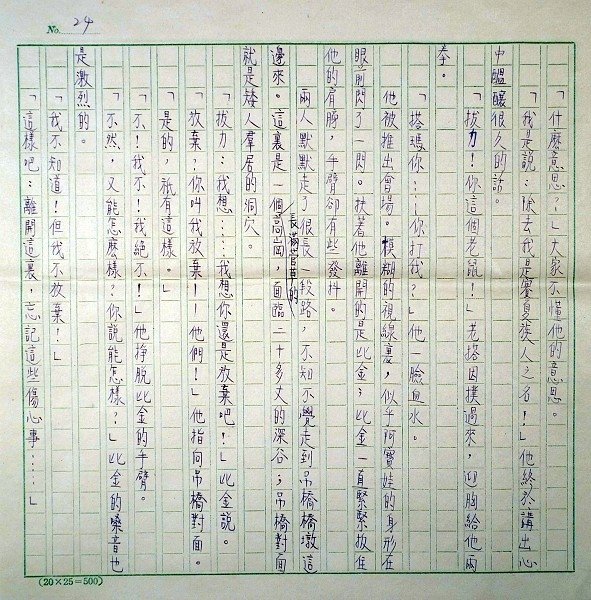 No. 24
「什麼意思？」大家不懂他的意思。
「我是說：除去我是賽夏族人之名！」他終於講出心
中醞釀很久的話。
「拔力！你這個老鼠！」老塔因撲過來，迎胸給他兩
拳。
「塔瑪你……你打我？」他一臉血水。
他被推出會場。模糊的視線裏，似乎阿賓娃的身形在
眼前閃了一閃。扶着他離開的是比金；比金一直緊緊扳住
他的肩膀，手臂卻有些發抖。
兩人默默走了很長一段路，不知不覺走到吊橋橋墩這
邊來。這裏是一個長滿菅草的高崗，面臨二十多丈的深谷；吊橋對面
就是矮人羣居的洞穴。
「拔力：我想……我想你還是放棄吧！」比金說。
「放棄？你叫我放棄！——他們！」他指向吊橋對面。
「是的，祇有這樣。」
「不！我不！我絕不！」他掙脫比金的手臂。
「不然，又能怎麼樣？你說能怎樣？」比金的嗓音也
是激烈的。
「我不知道！但我不放棄！」
「這樣吧：離開這裏，忘記這些傷心事……」
(20×25=500)